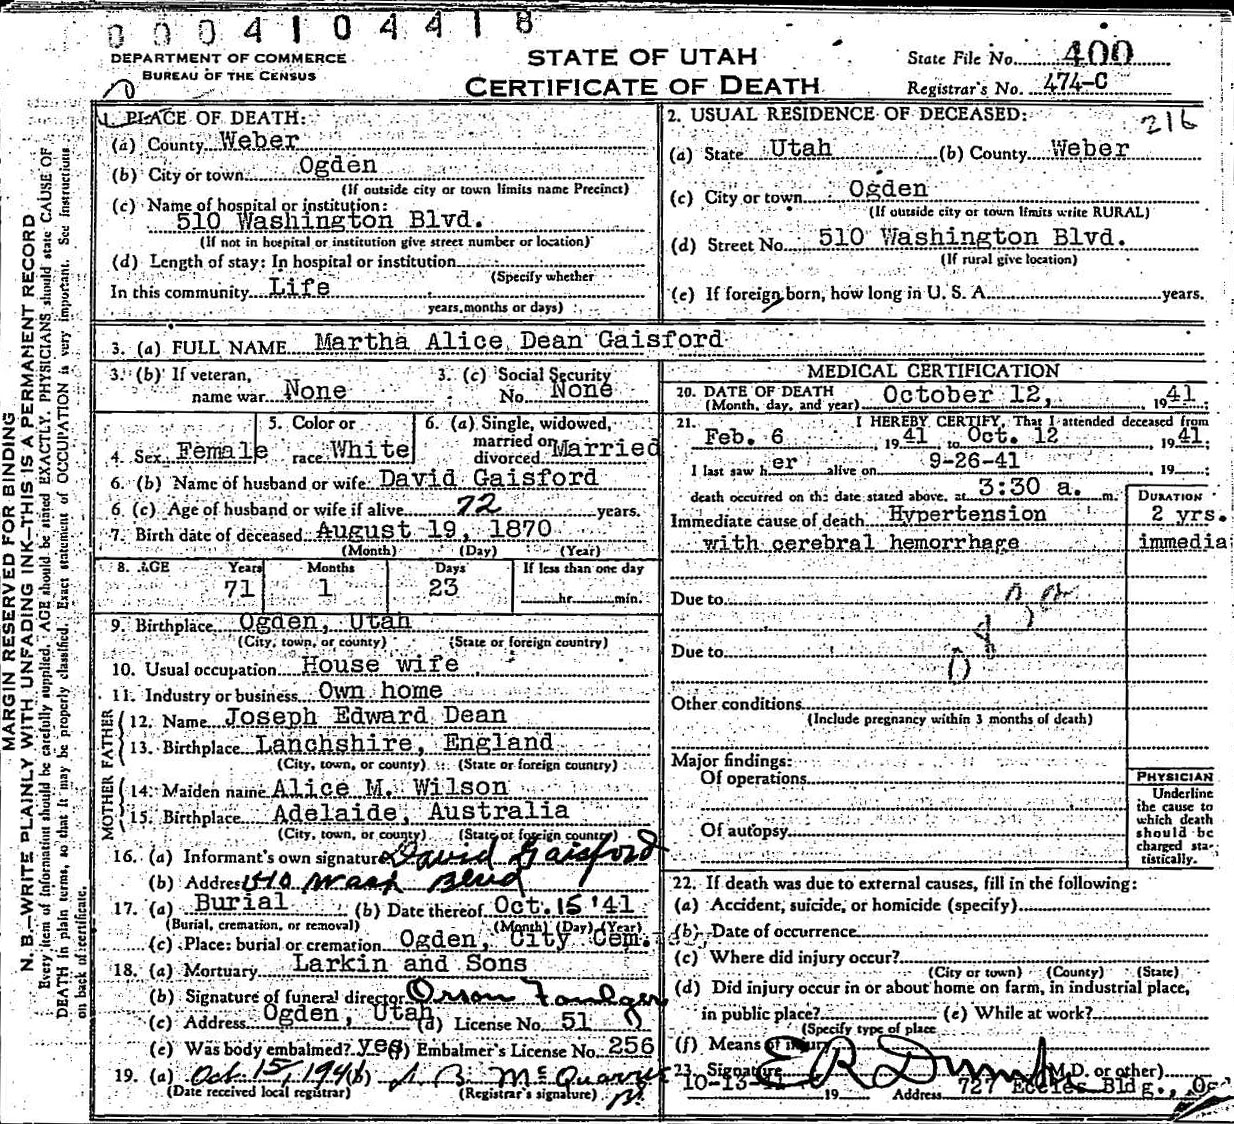 0004104418
DEPARTMENT OF COMMERCE
BUREAU OF THE CENSUS
STATE OF UTAH
CERTIFICATE OF DEATH
State File No. 400
Registrar's No. 474-C
216
MARGIN RESERVED FOR BINDING
N. B.—WRITE PLAINLY WITH UNFADING INK—THIS IS A PERMANENT RECORD
Every item of information should be carefully supplied. AGE should be stated EXACTLY. PHYSICIANS should state CAUSE OF
DEATH in plain terms, so that it may be properly classified. Exact statement of OCCUPATION is very important. See instructions
on back of certificate.
1. PLACE OF DEATH:
(a) County Weber
(b) City or town Ogden
(If outside city or town limits name Precinct)
(c) Name of hospital or institution:
510 Washington Blvd.
(If not in hospital or institution give street number or location)
(d) Length of stay: In hospital or institution
(Specify whether
In this community Life
years, months or days)
2. USUAL RESIDENCE OF DECEASED:
(a) State Utah (b) County Weber
(c) City or town Ogden
(If outside city or town limits write RURAL)
(d) Street No. 510 Washington Blvd.
(If rural give location)
(e) If foreign born, how long in U. S. A. years.
3. (a) FULL NAME Martha Alice Dean Gaisford
3. (b) If veteran, name war None
3. (c) Social Security No. None
4. Sex Female
5. Color or race White
6. (a) Single, widowed, married or divorced Married
6. (b) Name of husband or wife David Gaisford
6. (c) Age of husband or wife if alive 72 years.
7. Birth date of deceased August 19, 1870
(Month) (Day) (Year)
8. AGE Years Months Days If less than one day
71 1 23 hr. min.
9. Birthplace Ogden, Utah
(City, town, or county) (State or foreign country)
10. Usual occupation House wife
11. Industry or business Own home
FATHER
12. Name Joseph Edward Dean
13. Birthplace Lanchshire, England
(City, town, or county) (State or foreign country)
MOTHER
14. Maiden name Alice M. Wilson
15. Birthplace Adelaide, Australia
(City, town, or county) (State or foreign country)
16. (a) Informant's own signature David Gaisford
(b) Address 510 Wash Blvd
17. (a) Burial (b) Date thereof Oct. 15 '41
(Burial, cremation, or removal) (Month) (Day) (Year)
(c) Place: burial or cremation Ogden, City Cem.
18. (a) Mortuary Larkin and Sons
(b) Signature of funeral director Orson
(c) Address Ogden, Utah (d) License No. 51
(e) Was body embalmed? yes (f) Embalmer's License No. 256
19. (a) Oct. 15, 1941 (b)
(Date received local registrar) (Registrar's signature)
MEDICAL CERTIFICATION
20. DATE OF DEATH October 12, 1941
(Month, day, and year)
21. I HEREBY CERTIFY, That I attended deceased from
Feb. 6 1941 to Oct. 12 1941;
I last saw her alive on 9-26-41, 19 ;
death occurred on the date stated above, at 3:30 a. m.
DURATION
Immediate cause of death Hypertension 2 yrs.
with cerebral hemorrhage immedia
Due to
Due to
Other conditions
(Include pregnancy within 3 months of death)
Major findings:
Of operations
Of autopsy
PHYSICIAN
Underline
the cause to
which death
should be
charged sta-
tistically.
22. If death was due to external causes, fill in the following:
(a) Accident, suicide, or homicide (specify)
(b) Date of occurrence
(c) Where did injury occur?
(City or town) (County) (State)
(d) Did injury occur in or about home on farm, in industrial place,
in public place? (e) While at work?
(Specify type of place
(f) Means of injury
23. Signature E R (M.D. or other)
10-13-41 19 Address 727 Eccles Bldg., Og